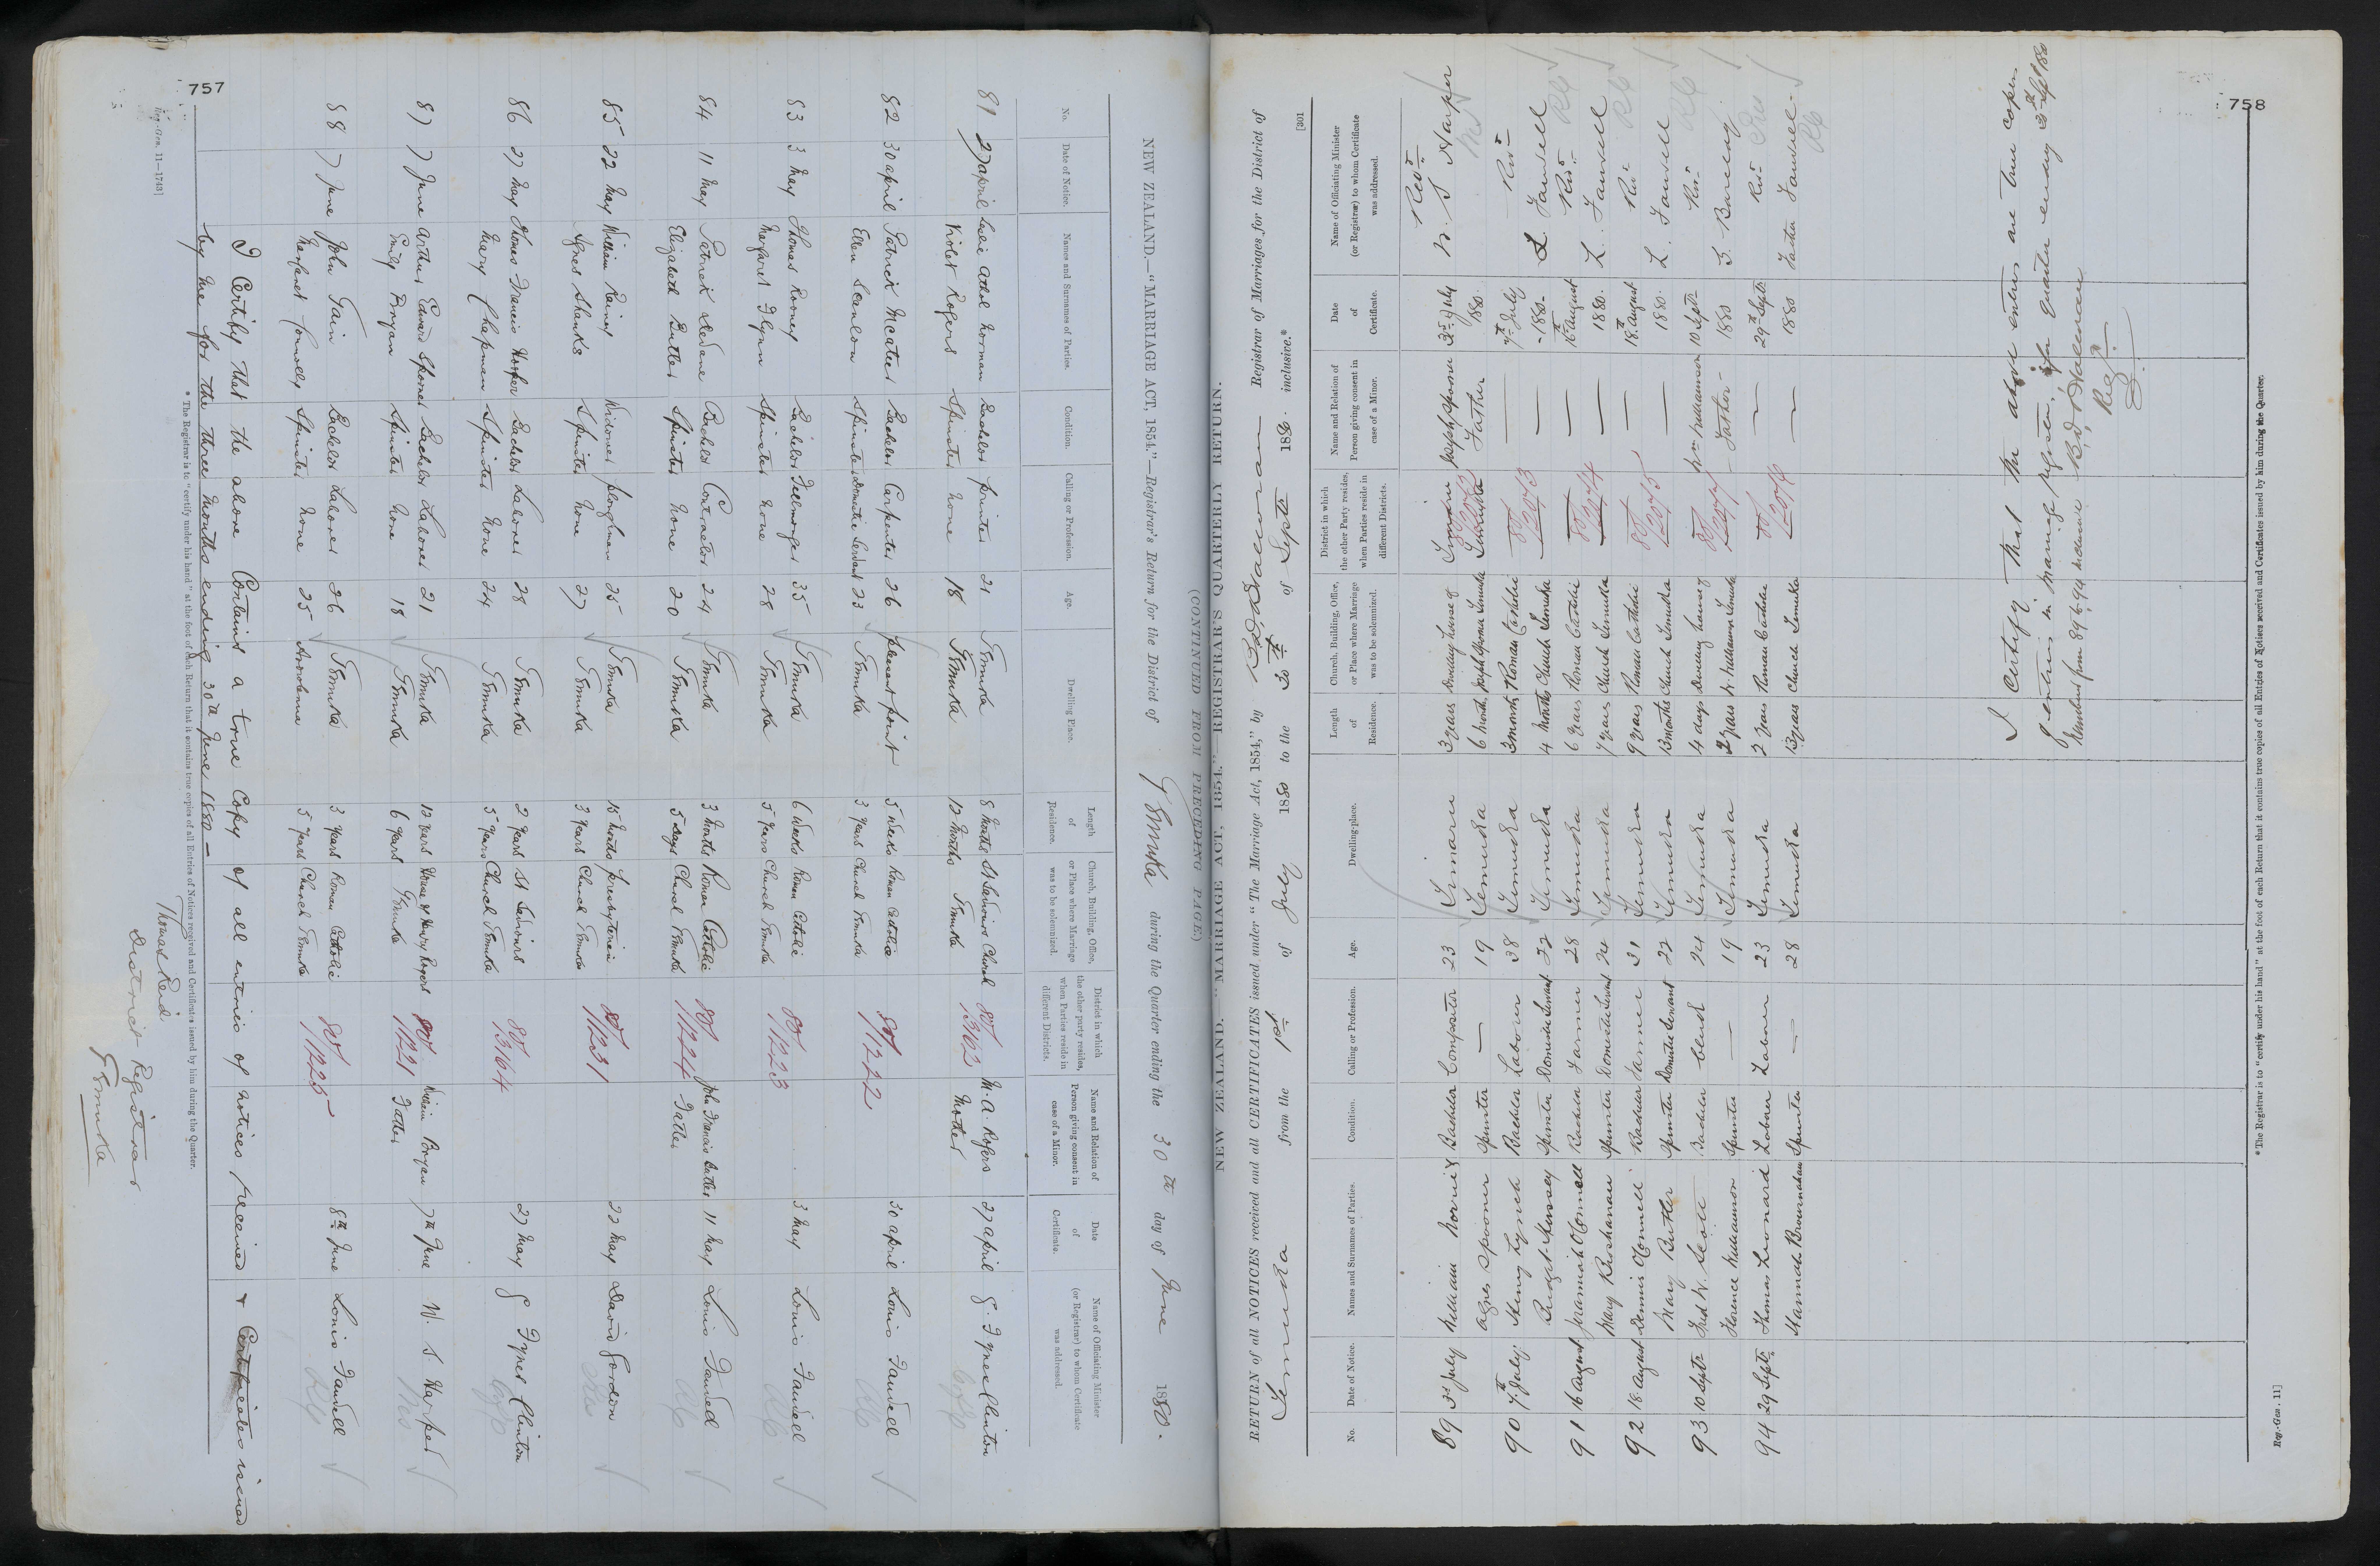 757
NEW ZEALAND.—"MARRIAGE ACT, 1854."—Registrar's Return for the District of Temuka during the Quarter ending the 30th day of June 1880.
No. Date of Notice. Names and Surnames of Parties. Condition. Calling or Profession. Age. Dwelling Place. Length of Residence. Church, Building, Office, or Place where Marriage was to be solemnized. District in which the other party resides, when Parties reside in different Districts. Name and Relation of Person giving consent in case of a Minor. Date of Certificate. Name of Officiating Minister (or Registrar) to whom Certificate was addressed.
81 27 April Leslie Athol Norman Bachelor printer 21 Temuka 8 Months St Saviours Church 80/1362 M. A. Rogers 27 April
Violet Rogers Spinster None 18 Temuka 12 Months Temuka Mother
82 30 April Patrick McAteer Bachelor Carpenter 26 pleasant point 5 Weeks Roman Catholic 80/1222 30 April Louis Fauvell
Ellen Scanlon Spinster Domestic Servant 23 Temuka 3 Years Church Temuka
83 3 May Thomas Rooney Bachelor Fellmonger 35 Temuka 6 Weeks Roman Catholic 80/1223 3 May Louis Fauvell
Margaret Flynn Spinster None 28 Temuka 5 Years Church Temuka
84 11 May Patrick Bachelor Contractor 24 Temuka 3 Months Roman Catholic 80/1224 John Francis Butler 11 May Louis Fauvell
Elizabeth Butler Spinster None 20 Temuka 5 Days Church Temuka Father
85 22 May William Raines Widower ploughman 25 Temuka 15 Months presbyterian 80/1231 22 May David Gordon
Agnes Shanks Spinster None 27 Temuka 3 Years Church Temuka
86 27 May Thomas Francis Hooper Bachelor Laborer 28 Temuka 2 Years St Saviours 80/1364 27 May
Mary Chapman Spinster None 24 Temuka 5 Years Church Temuka
87 7 June Arthur Edward Spooner Bachelor Laborer 21 Temuka 12 Years House of Henry Rogers 80/1221 William Bryan 7th June W. S. Harper
Emily Bryan Spinster None 18 Temuka 6 Years Temuka Father
88 7 June John Fain Bachelor Laborer 26 Temuka 3 Years Roman Catholic 80/1225 8th June Louis Fauvell
Margaret Connolly Spinster None 25 Arowhenua 5 Years Church Temuka
I Certify that the above Contains a true Copy of all entries of notices received & Certificates issued
by me for the three Months ending 30th June 1880—
Thomas Reid
District Registrar
Temuka
* The Registrar is to "certify under his hand" at the foot of each Return that it contains true copies of all Entries of Notices received and Certificates issued by him during the Quarter.
Reg.-Gen. 11—1743]
758
[301
(CONTINUED FROM PRECEDING PAGE.)
NEW ZEALAND.—"MARRIAGE ACT, 1854."—REGISTRAR'S QUARTERLY RETURN.
RETURN of all NOTICES received and all CERTIFICATES issued under "The Marriage Act, 1854," by Registrar of Marriages for the District of
Temuka from the 1st of July 1880 to the 30th of Septr 1880 inclusive.*
No. Date of Notice. Names and Surnames of Parties. Condition. Calling or Profession. Age. Dwelling-place. Length of Residence. Church, Building, Office, or Place where Marriage was to be solemnized. District in which the other Party resides, when Parties reside in different Districts. Name and Relation of Person giving consent in case of a Minor. Date of Certificate. Name of Officiating Minister (or Registrar) to whom Certificate was addressed.
89 3rd July William Norrie Bachelor Compositor 23 Timaru 3 years Dwelling house of Timaru Joseph Spooner 3rd July Revd
Agnes Spooner Spinster — 19 Temuka 6 months Joseph Spooner Temuka Temuka Father 1880. W. S. Harper
90 7th July Henry Lynch Bachelor Labourer 38 Temuka 3 months Roman Catholic 80/2073 — 7th July Revd
Bridget Spinster Domestic Servant 22 Temuka 4 months Church Temuka — 1880 L. Fauvell
91 16 August Jeremiah O'Connell Bachelor Farmer 28 Temuka 6 years Roman Catholic 80/2074 — 16th August Revd
Mary Brosnahan Spinster Domestic Servant 24 Temuka 7 years Church Temuka — 1880. L. Fauvell
92 18. August Dennis O'Connell Bachelor Farmer 31 Temuka 9 years Roman Catholic 80/2075 — 18th August Revd
Mary Butler Spinster Domestic Servant 22 Temuka 13 months Church Temuka — 1880. L. Fauvell
93 10 Septr Fred W. Scott Bachelor Clerk 24 Temuka 4 days Dwelling house of 80/2077 Wm Williamson 10 Septr Revd
Florence Williamson Spinster — 19 Temuka 2 years W. Williamson Temuka Father 1880
94 29 Septr Thomas Leonard Laborer Labourer 23 Temuka 2 years Roman Catholic 80/2076 — 29th Septr Revd
Hannah Brosnahan Spinster — 28 Temuka 13 years Church Temuka — 1880 Father Fauvell
I Certify that the above entries are true copies
of entries in marriage register, for quarter ending 30th Sept 1880
Numbers from 89 to 94 inclusive
Regr
*The Registrar is to "certify under his hand" at the foot of each Return that it contains true copies of all Entries of Notices received and Certificates issued by him during the Quarter.
Reg.-Gen. 11]